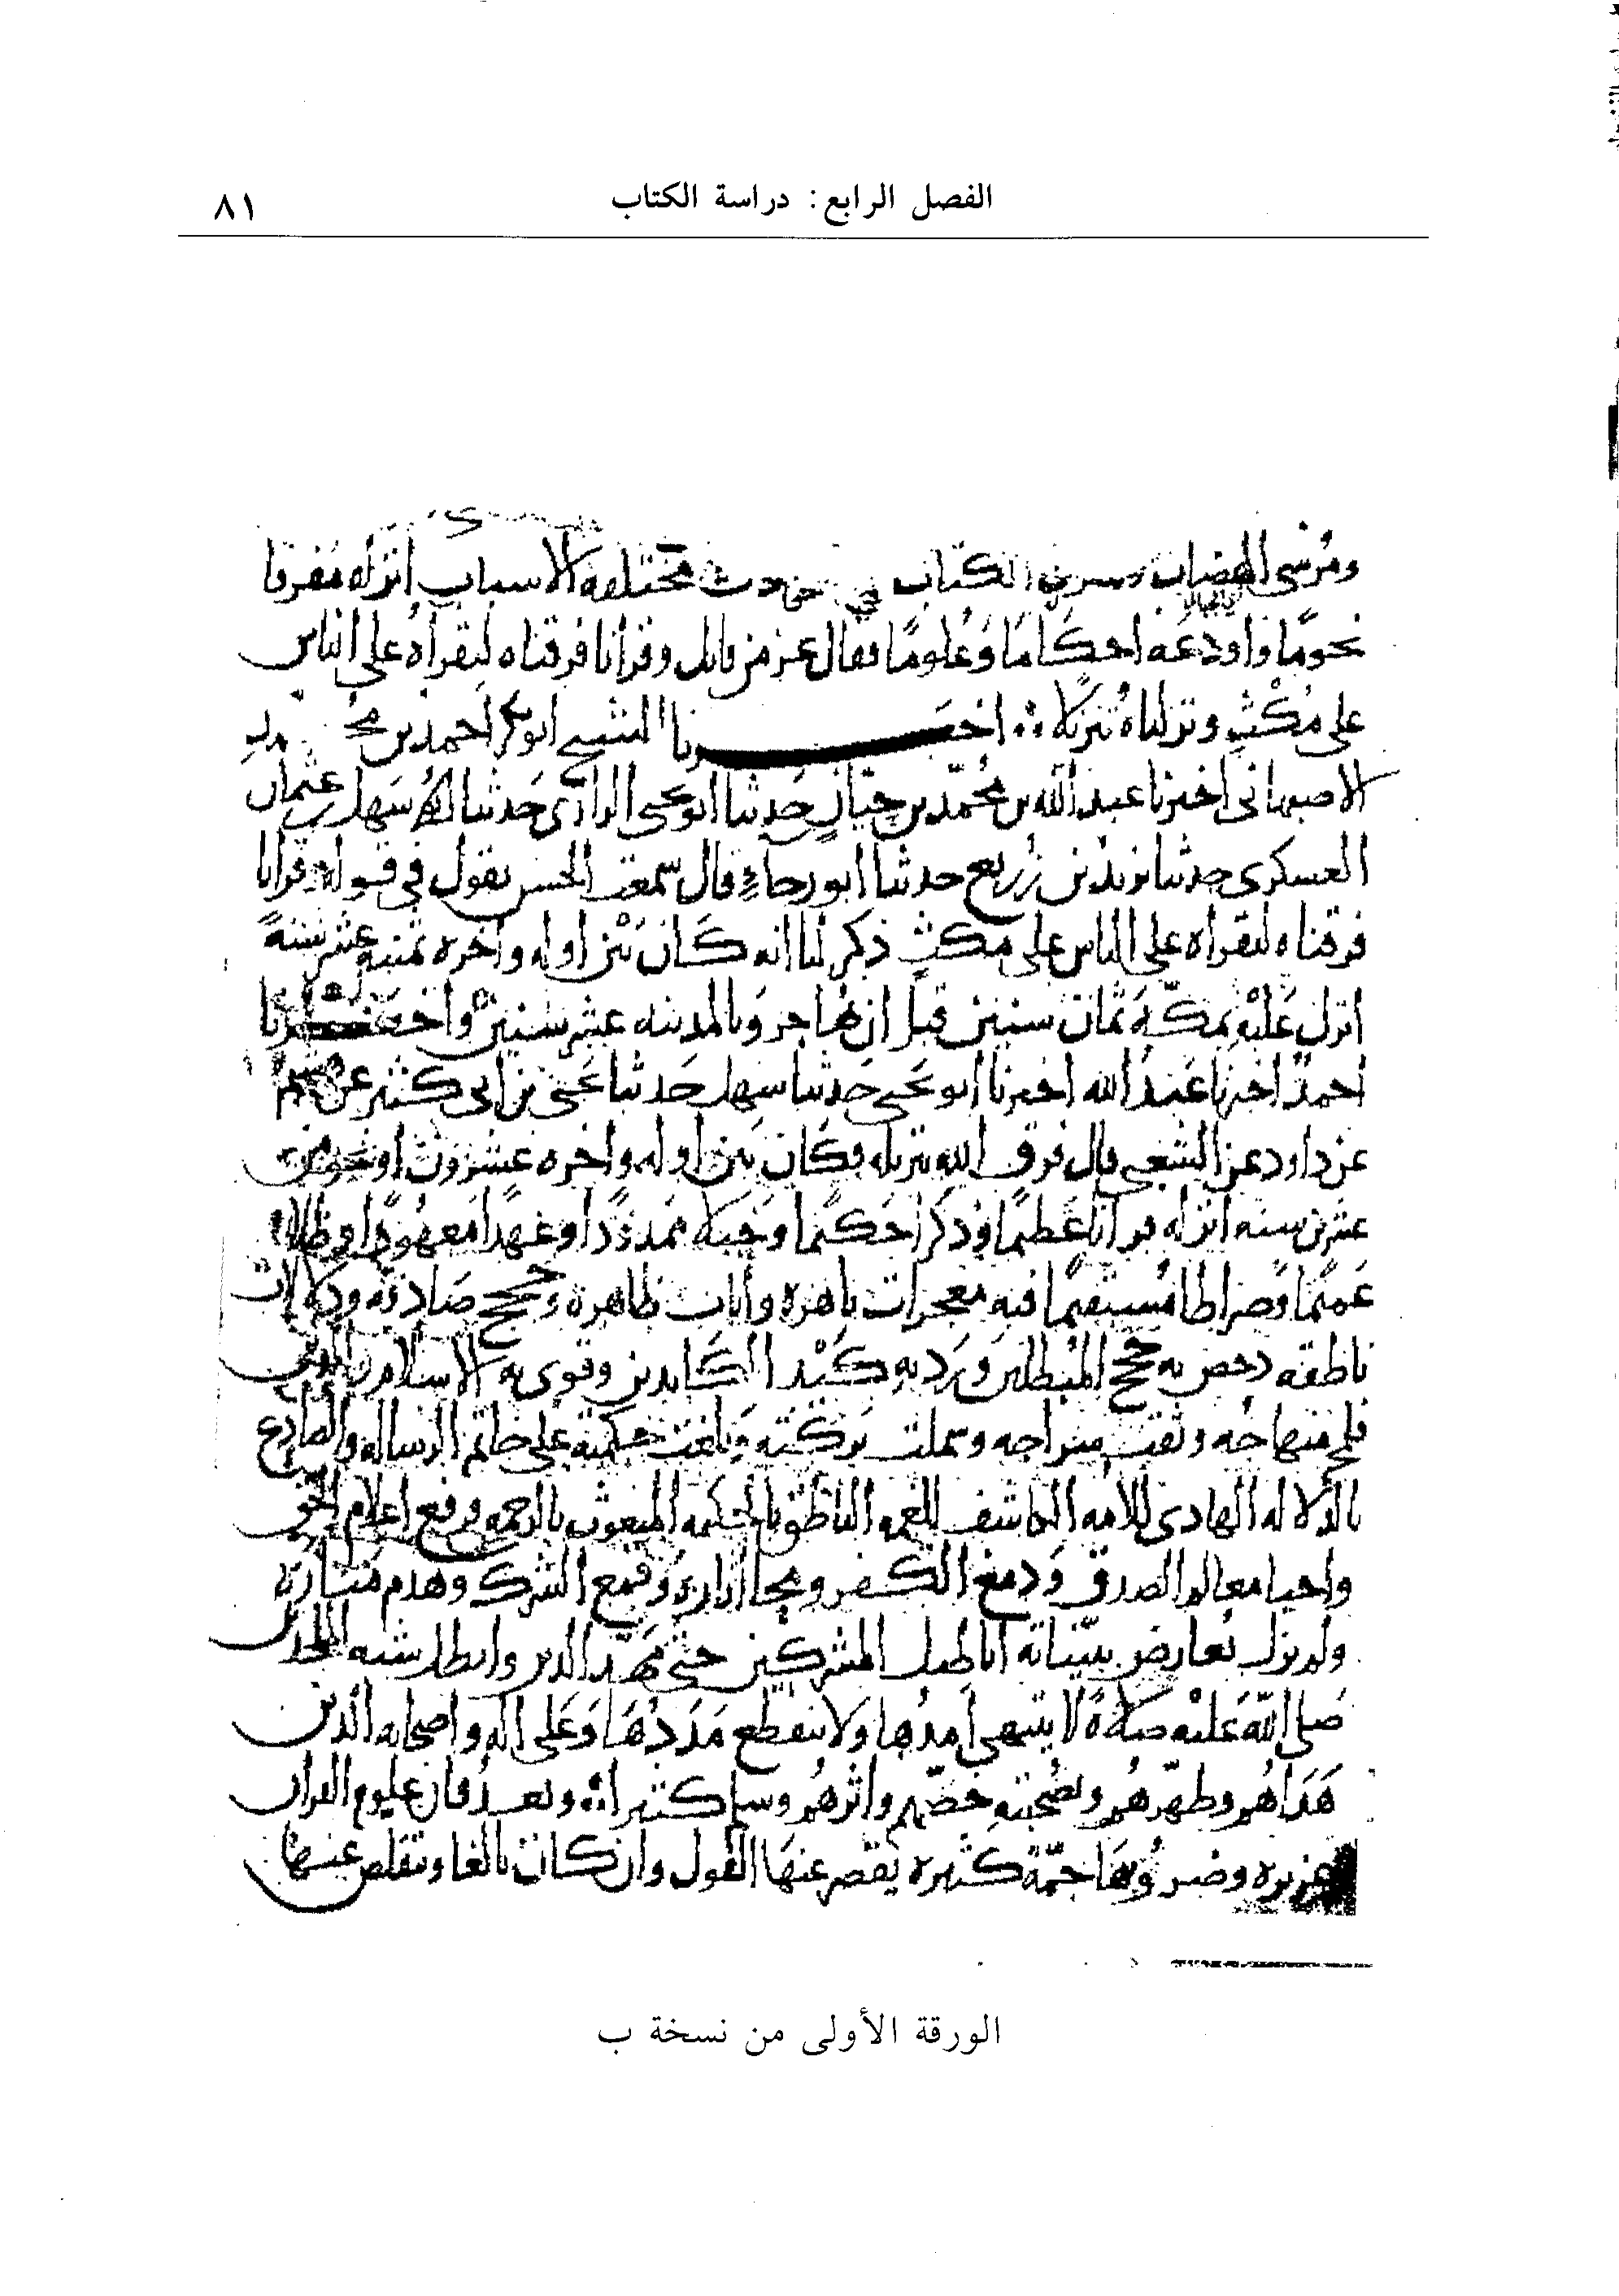 الفصل الرابع: دراسة الكتاب
٨١
ومرسى الهضاب الكتاب في حوادث مختلفه الاسباب انزله مفرقا
نجومًا واودعه احكامًا وعُلومًا فقال عز من قايل وقرانا فرقناه لتقرأه على الناس
على مُكْثٍ ونزلناه تنزيلا ∴ اخبـــرنا الشيخ ابو بكر احمد بن محمد
الاصبهاني اخبرنا عبد الله بن محمّد بن حيّان حدثنا ابو يحيى الرازى حدثنا سهل بن عثمان
العسكرى حدثنا يزيد بن زُريع حدثنا ابو رجاء قال سمعت الحسن يقول في قوله وقرانا
فرقناه لتقراه على الناس على مكثٍ ذكر لنا انه كان بَيْن اوله واخره ثمنيه عشر سنةً
انزل عَلَيْهِ بمكّة ثمان سنين قبل ان يُهاجر وبالمدينه عشر سنين واخبـرنا
احمدُ اخبرنا عَبدُ الله اخبرنا ابو يحيى حَدثنا سهل حَدثنا يحيى بن ابى كثير عن هشيم
عن داود عن الشعبى قال فرق الله تنزيله فكان بَين اوله واخره عشرون او نحو من
عشرين سنه انزله قرانا عَظيمًا وذكرا حَكيما وحَبلا مَمدودًا وعَهدًا مَعهُودًا وظلا
عَميمًا وصراطا مُستقيمًا فيه معجزات باهره وايات ظاهرة وحجج صَادقه ودلالات
ناطقه دحض به حجج المُبطلين ورَد به كَيْد الكايدين وقوى به الاسلام والدين
فلج منهاجُه وثقب سراجه وشملت بَركته وبلغت حكمته على خاتم الرساله والصادع
بالدّلاله الهادى للامه الكاشف للغمه الناطق بالحكمه المبعوث بالرحمه فرفع اعلام الحق
واحيا معالم الصدق ودمغ الكفر ومحا اثاره وقمع الشرك وهدم مناره
ولم يزل يُعارض ببيّناته اباطيل المشركين حتى مهّد الدين وابطل شبه الملحدين
صَلى الله عَلَيْه صلاةً لا ينتهى امدُها ولا ينقطع مَددُها وَعَلى اله واصحابه الذين
هَدَاهُم وطهّرهُم وبصُحبته خصّهم واثرهُم وسلم كثيرا ∴ وبعد فان علوم القران
غزيره وضروبها جمّة كثيره يَقصر عنهَا القول وان كان بالغا ويتقلص عنها
الورقة الأولى من نسخة ب